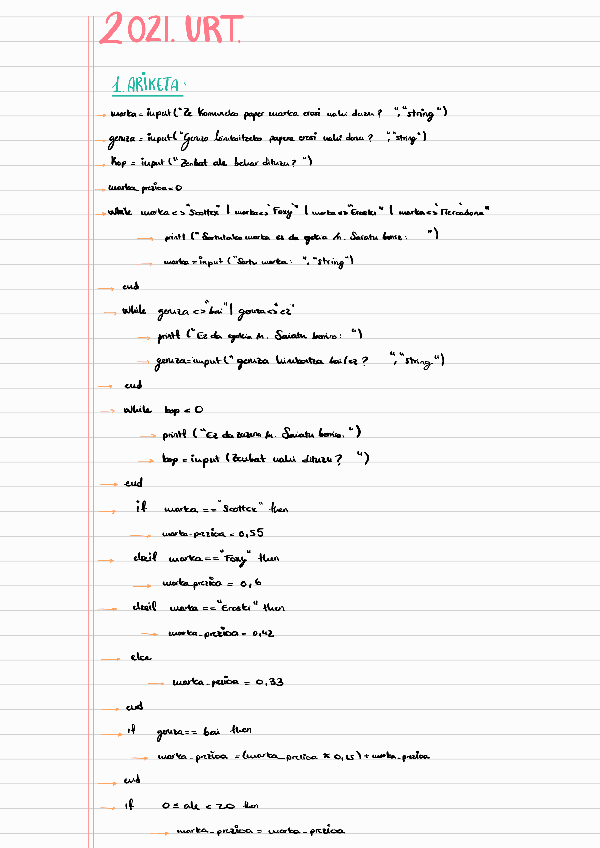 2021. URT.
1. ARIKETA:
→ marka = input ("Ze komuneko paper marka erosi nahi duzu? ", "string")
→ geruza = input ("Geruza bikoitzeko papera erosi nahi duzu? ", "string")
→ kop = input ("Zenbat ale behar dituzu? ")
→ marka_prezioa = 0
→ while marka <> "Scottex" | marka <> "Foxy" | marka <> "Eroski" | marka <> "Mercadona"
→ printf ("Sartutako marka ez da egokia \n. Saiatu berriz: ")
→ marka = input ("Sartu marka: ", "string")
→ end
→ while geruza <> "bai" | geruza <> "ez"
→ printf ("Ez da egokia \n. Saiatu berriro: ")
→ geruza = input (" geruza bikoitza bai/ez? ", "string")
→ end
→ while kop < 0
→ printf ("Ez da zuzena \n. Saiatu berriro. ")
→ kop = input (Zenbat nahi dituzu? ")
→ end
→ if marka == "Scottex" then
→ marka_prezioa = 0,55
→ elseif marka == "Foxy" then
→ marka_prezioa = 0,6
→ elseif marka == "Eroski" then
→ marka_prezioa = 0,42
→ else
→ marka_prezioa = 0,33
→ end
→ if geruza == bai then
→ marka_prezioa = (marka_prezioa * 0,15) + marka_prezioa
→ end
→ if 0 ≤ ale < 20 then
→ marka_prezioa = marka_prezioa